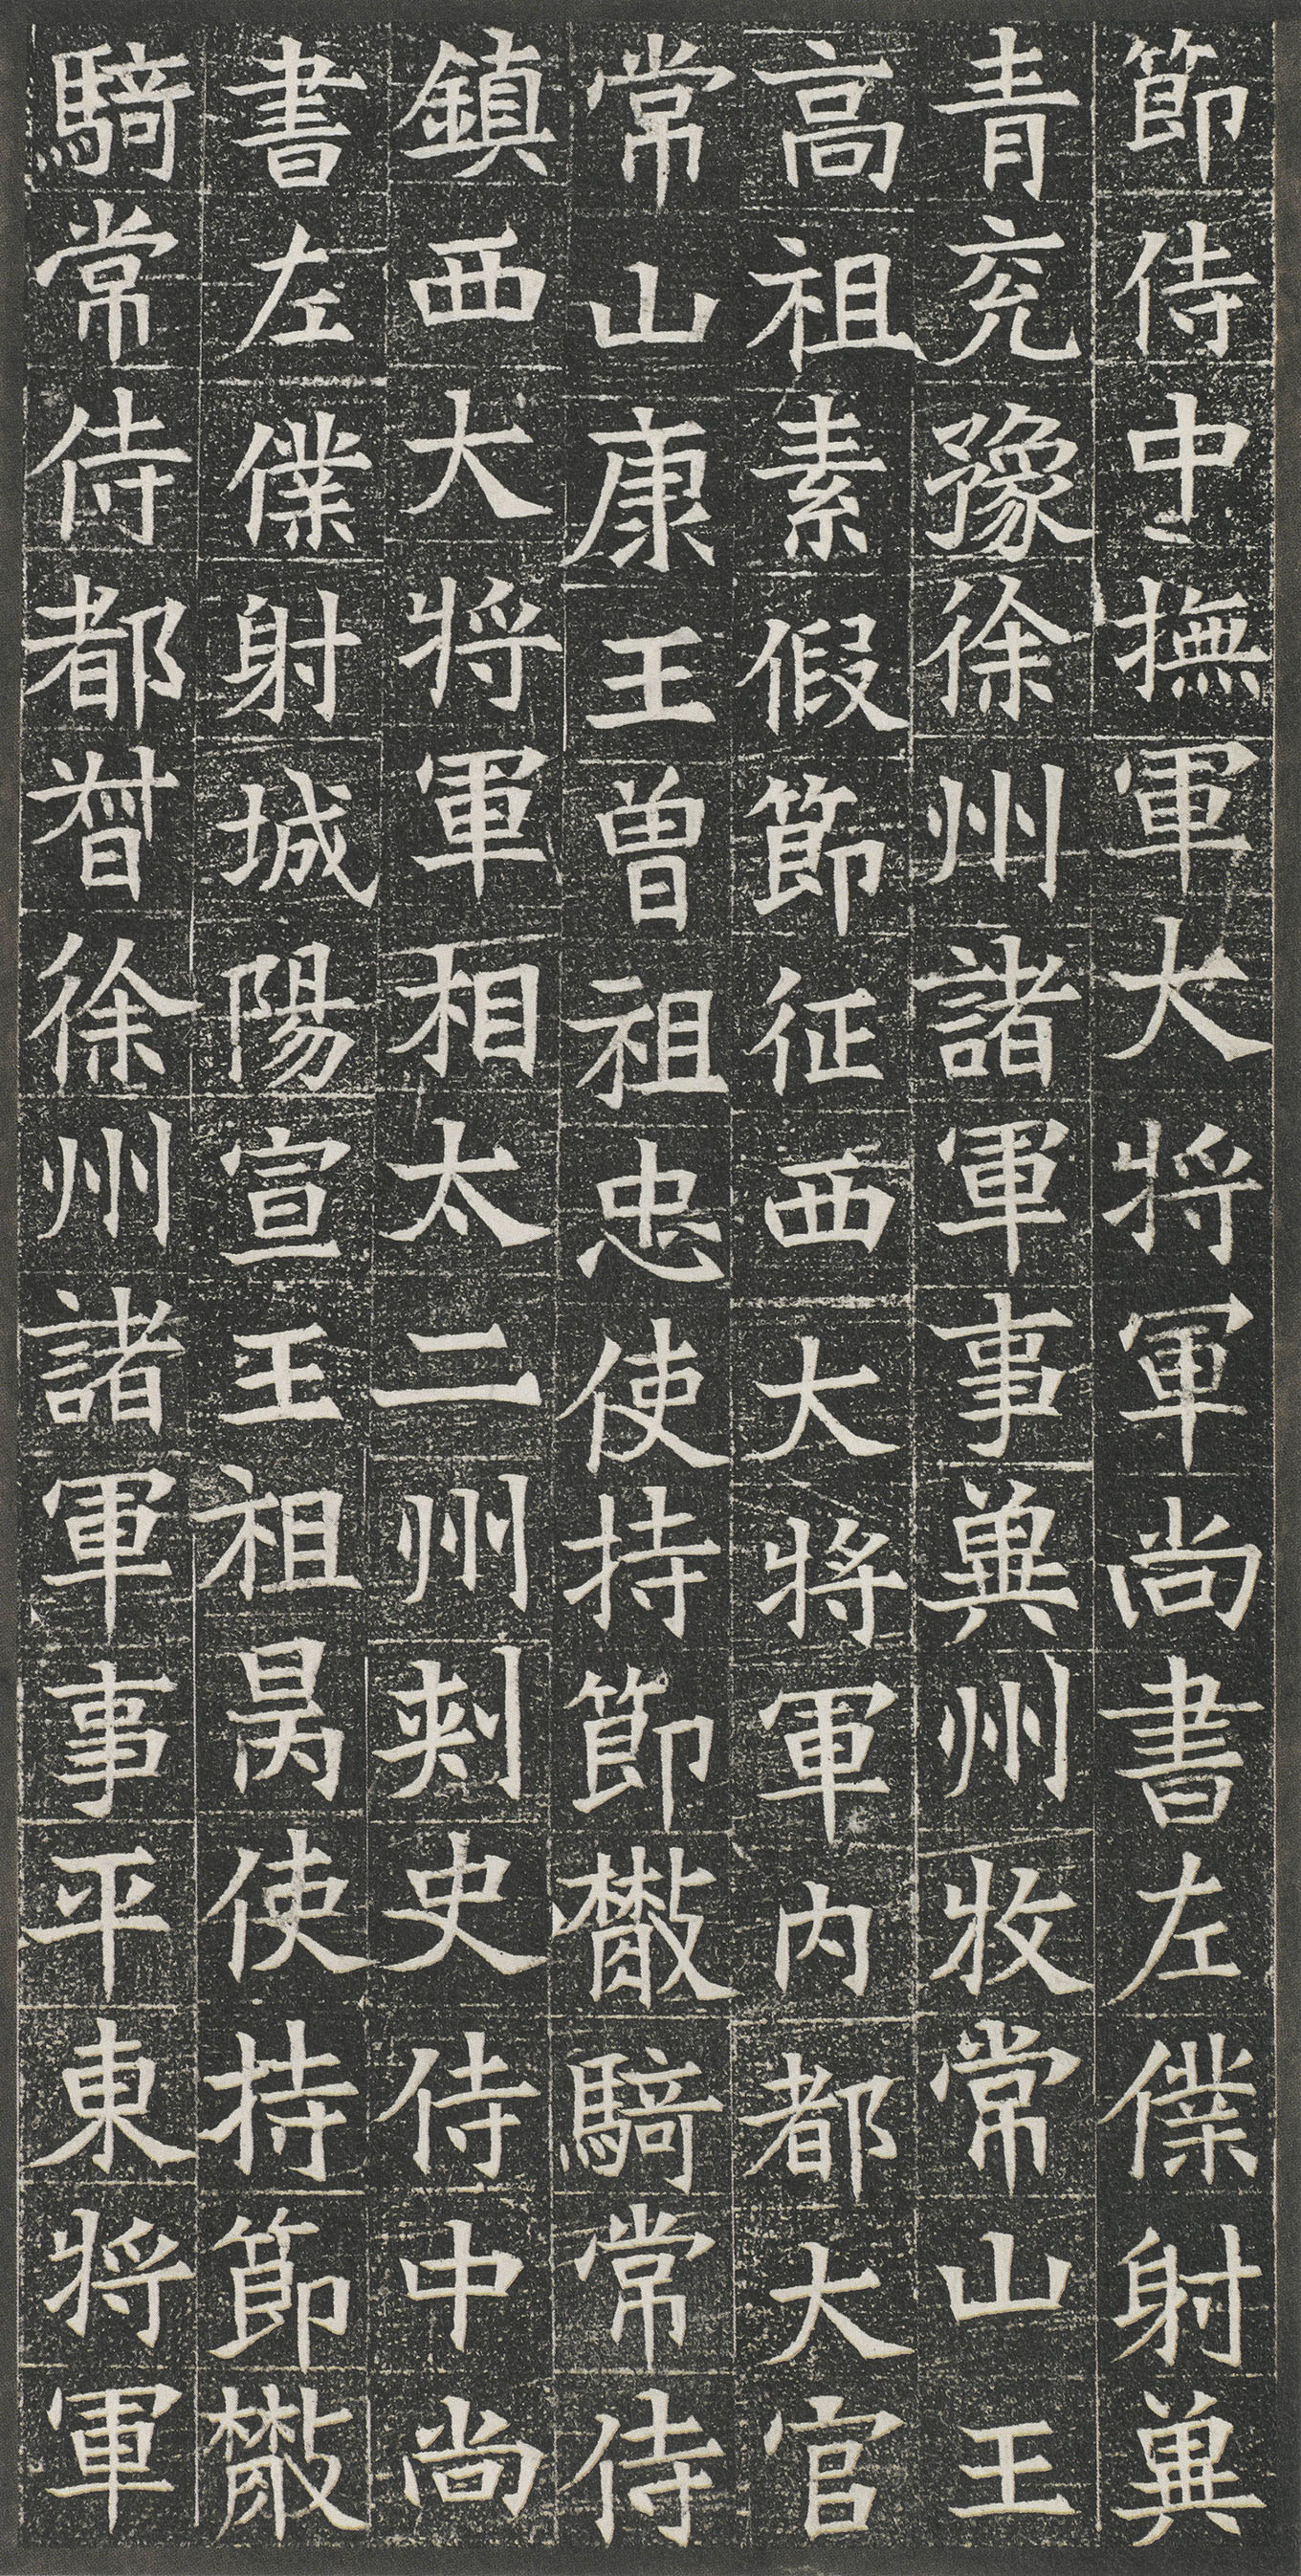 節侍中撫軍大將軍尚書左僕射兾
青兖豫徐州諸軍事兾州牧常山王
高祖素假節征西大將軍内都大官
常山康王曽祖忠使持節散騎常侍
鎮西大將軍相太二州刾史侍中尚
書左僕射城陽宣王祖昺使持節散
騎常侍都督徐州諸軍事平東將軍